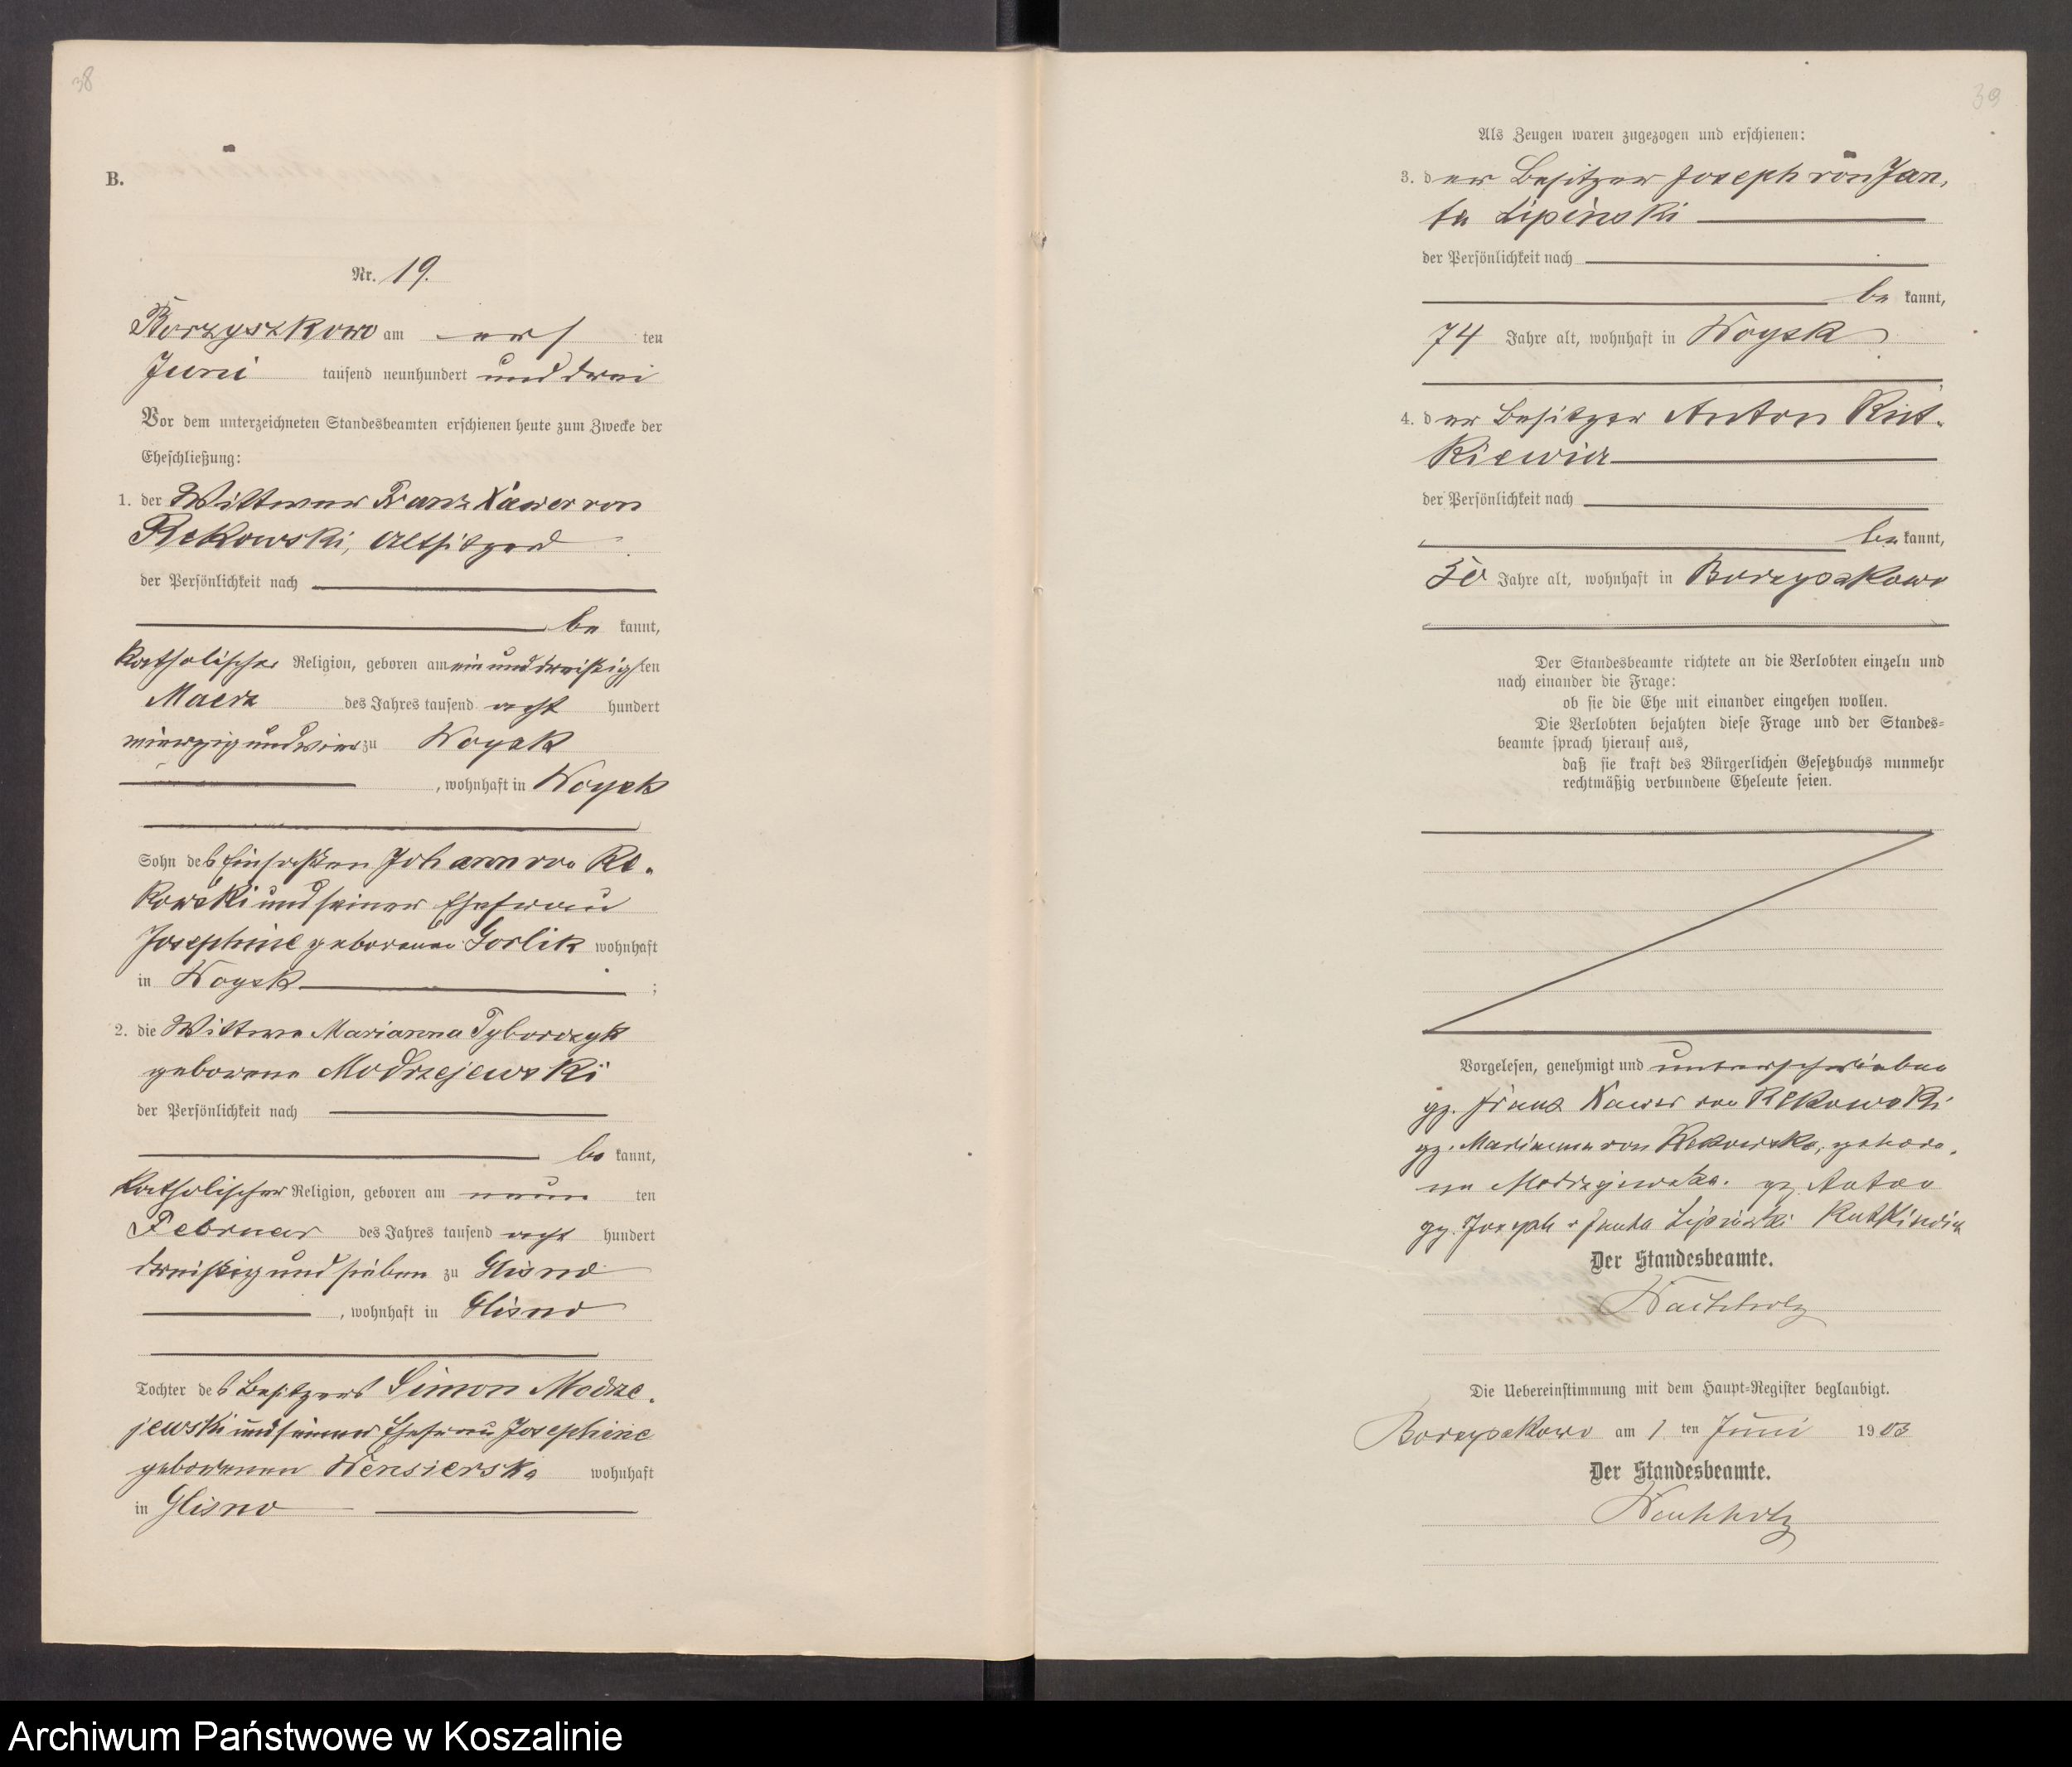 38
B.
Nr. 19.
Borzyszkowo am ersten
Juni tausend neunhundert und drei
Vor dem unterzeichneten Standesbeamten erschienen heute zum Zwecke der
Eheschließung:
1. der Wittwer Franz Xawer von
Rekowski, Altsitzer
der Persönlichkeit nach
bekannt,
katholischer Religion, geboren am einunddreißigsten
Maerz des Jahres tausend achthundert
vierzigundvier zu Woysk
, wohnhaft in Woysk
Sohn des Einsassen Johann von Re-
kowski und seiner Ehefrau
Josephine geborenen Gorlik wohnhaft
in Woysk ;
2. die Wittwe Marianna Tyborczyk
geborene Modrzejewski
der Persönlichkeit nach
bekannt,
katholischer Religion, geboren am neunten
Februar des Jahres tausend achthundert
dreißig und sieben zu Glisno
, wohnhaft in Glisno
Tochter des Besitzers Simon Modrze-
jewski und seiner Ehefrau Josephine
geborenen Wensierska wohnhaft
in Glisno
39
Als Zeugen waren zugezogen und erschienen:
3. der Besitzer Joseph von Jan-
ta Lipinski
der Persönlichkeit nach
bekannt,
74 Jahre alt, wohnhaft in Woysk
4. der Besitzer Anton Rut-
kiewicz
der Persönlichkeit nach
bekannt,
50 Jahre alt, wohnhaft in Borzyszkowo
Der Standesbeamte richtete an die Verlobten einzeln und
nach einander die Frage:
ob sie die Ehe mit einander eingehen wollen.
Die Verlobten bejahten diese Frage und der Standes-
beamte sprach hierauf aus,
daß sie kraft des Bürgerlichen Gesetzbuchs nunmehr
rechtmäßig verbundene Eheleute seien.
Vorgelesen, genehmigt und unterschrieben
gz. Franz Xawer von Rekowski
gz. Marianna von Rekowska, gebore-
ne Modrzejewska. gz. Anton
gz. Joseph v Janta Lipinski Rutkiewicz
Der Standesbeamte.
Die Uebereinstimmung mit dem Haupt-Register beglaubigt.
Borzyszkowo am 1 ten Juni 1903
Der Standesbeamte.
Archiwum Państwowe w Koszalinie